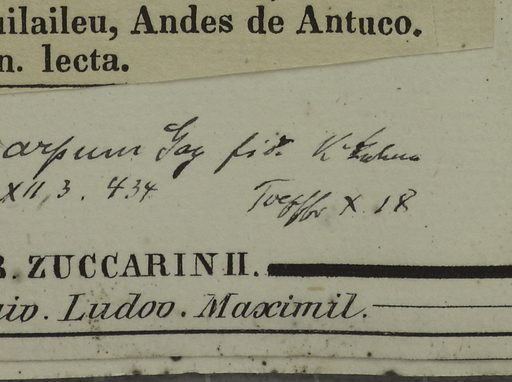 uilaileu, Andes de Antuco.
n. lecta.
arpum Gay fid.
XII, 3. 434 X. 18
B. ZUCCARINII.
niv. Ludov. Maximil.